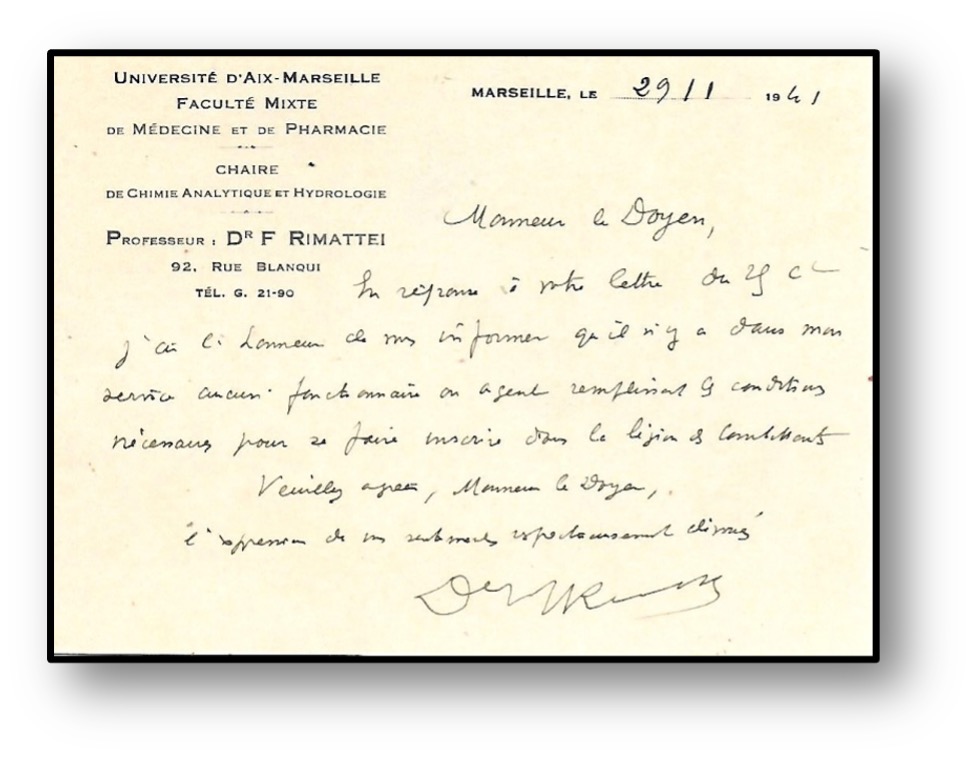 UNIVERSITÉ D'AIX-MARSEILLE
FACULTÉ MIXTE
DE MÉDECINE ET DE PHARMACIE
CHAIRE
DE CHIMIE ANALYTIQUE ET HYDROLOGIE
PROFESSEUR : DR F RIMATTEI
92, RUE BLANQUI
TÉL. G. 21-90
MARSEILLE, LE 29 11 1941
Monsieur le Doyen,
En réponse à votre lettre du 25 ct
j'ai l'honneur de vous informer qu'il n'y a dans mon
service aucun fonctionnaire ou agent remplissant les conditions
nécessaires pour se faire inscrire dans la légion des Combattants
Veuillez agréer, Monsieur le Doyen,
l'expression de mes sentiments respectueusement dévoués